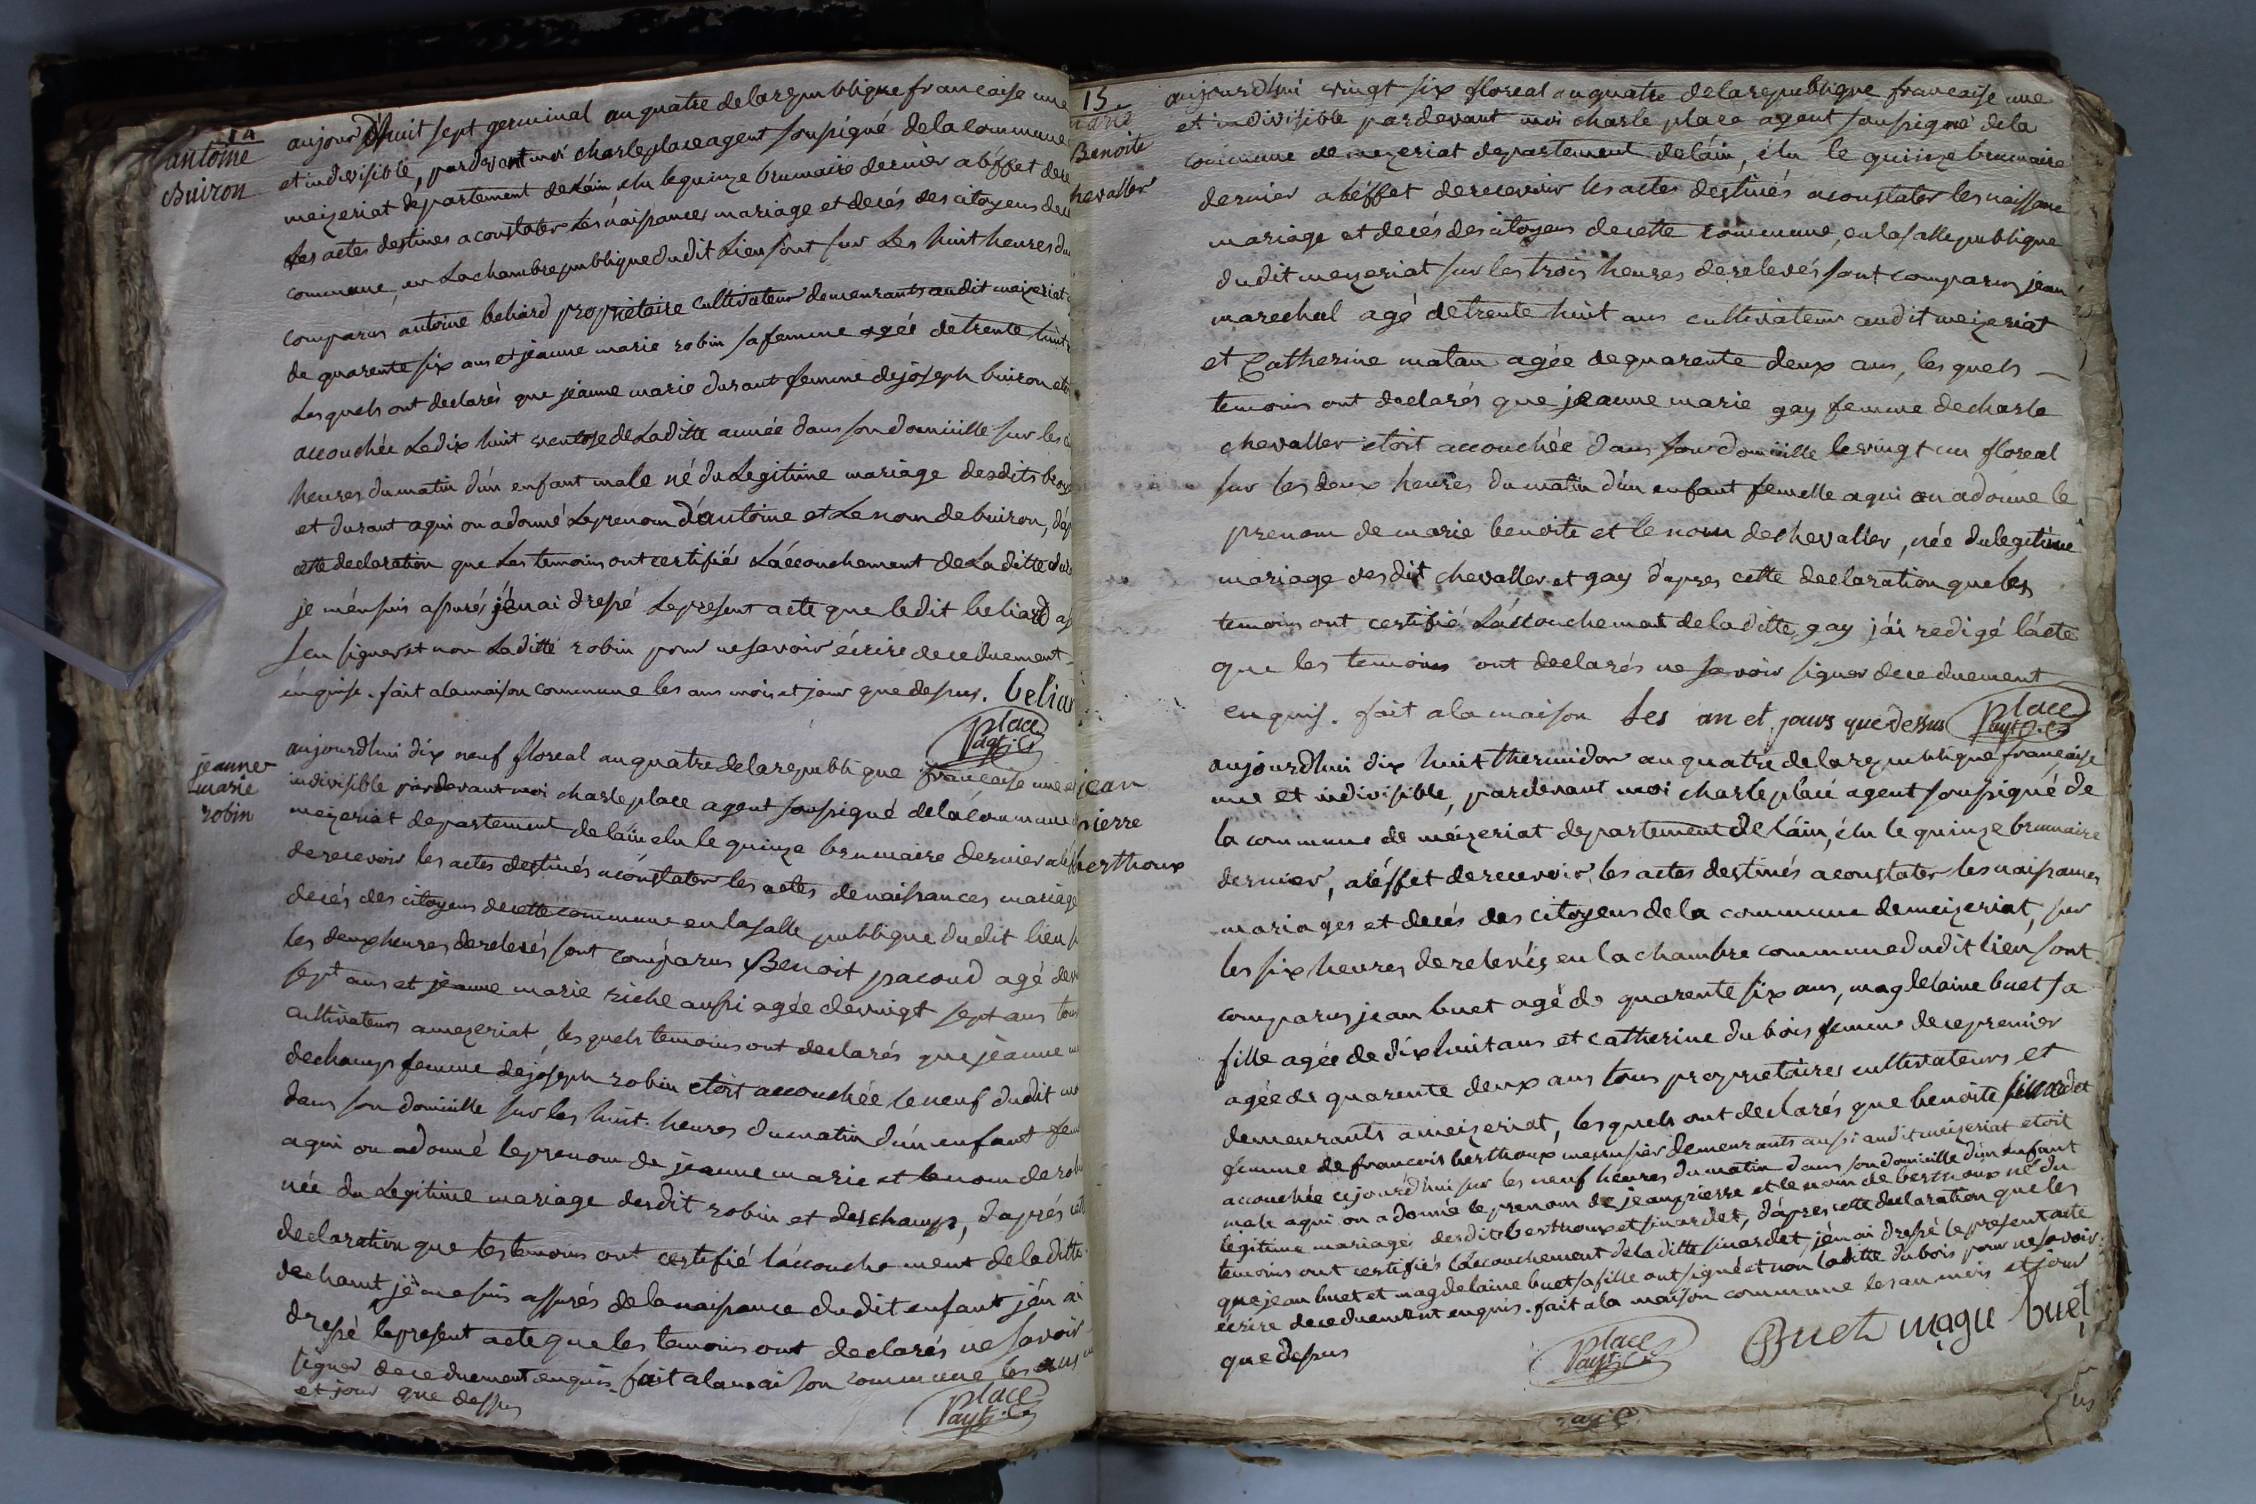 14
antoine
Buiron
aujourdhuit sept germinal an quatre de la republique francaise une
et indivisible, pardevant moi charle place agent soussigné de la commune
meizeriat departement de Láin elu le quinze brumaire dernier a léffet de re
Les actes destines a constater Les náissances mariage et decés des citoyens de
commune, en La chambre publique dudit Lieu sont sur Les huit heures du
comparus antoine beliard propriétaire cultivateur demeurants audit meizeriat
de quarente six ans et jeanne marie robin sa femme agée de trente huit
Lesquels ont declarés que jéanne marie durant femme de joseph buiron et
accouchée Le dix huit ventose de Laditte année dans son domicille sur les
heures du matin dún enfant male né du Legitime mariage desdits
et durant a qui on a donné Le prenom dántoine et Le nom de buiron,
cette declaration que Les temoins ont certifiés Láccouchement de Laditte
je mén suis assurés jén ai dressé Le present acte que ledit beliard
seu signer et non Laditte robin pour ne savoir écrire de ce duement
énquise. fait a la maison commune les ans mois et jour que dessus. beliar
place
agt. c
jeanne
marie
robin
aujourdhui dix neuf floreal an quatre de la republique francaise une
indivisible pardevant moi charle place agent soussigné de la commune
meizeriat departement de láin elu le quinze brumaire dernier a lé
de recevoir les actes destinés a constater les actes de naissances mariage
decés des citoyens de cette commune en la salle publique dudit lieu
les deux heures de relevés sont comparus Benoit pacoud agé de
sept ans et jeanne marie riche aussi agée de vingt sept ans
cultivateurs a mezeriat, lesquels temoins ont declarés que jéanne
dechamps femme de joseph robin etoit accouchée le neuf dudit
dans son domicille sur les huit heures du matin dún enfant
a qui on a donné le prenom de jeanne marie et le nom de
née du Legitime mariage desdit robin et deschamps, dáprés
declaration que les temoins ont certifié láccouchement de laditte
dechamt jé me suis assurés de la naissance dudit enfant jén ai
dressé le present acte que les temoins ont declarés ne savoir
signer de ce duement enquis. fait a la maison commune les ans
et jour que dessus
place
agt. c
15
Benoite
hevaller
aujourdhui vingt six floreal an quatre de la republique francaise une
et indivisible pardevant moi charle place agent soussigné de la
commune de mezeriat departement de láin, élu le quinze brumaire
dernier a léffet de recevoir les actes destinés a constater les naissance
mariage et decés des citoyens de cette commune, en la salle publique
dudit mezeriat sur les trois heures de relevés sont comparus jean
marechal agé de trente huit ans cultivateur audit meizeriat
et Catherine matan agée de quarente deux ans, les quels
temoins ont declarés que jeanne marie gay femme de charle
chevaller etoit accouchée dans son domicille le vingt un floreal
sur les deux heures du matin dún enfant femelle a qui on a donne le
prenom de marie benoite et le nom de chevaller, née du legitime
mariage desdit chevaller et gay dápres cette declaration que les
temoins ont certifié Láccouchement de laditte gay jái redigé lácte
que les temoins ont declarés ne savoir signer de ce duement
enquis. fait a la maison Les an et jours que dessus place
agt. c
jean
pierre
berthoux
aujourdhui dix huit thermidor an quatre de la republique francaise
une et indivisible, pardevant moi charle place agent soussigné de
la commune de meizeriat departement de láin, élu le quinze brumaire
dernier, a léffet de recevoir les actes destinés a constater les naissances
mariages et decés des citoyens de la commune de meizeriat, sur
les six heures de relevés en la chambre commune dudit lieu sont
comparus jean buet agé de quarente six ans, magdelaine buet sa
fille agée de dix huit ans et catherine dubois femme de ce premier
agée de quarente deux ans tous proprietaires cultivateurs et
demeurants a meizeriat, lesquels ont declarés que benoite sicardet
femme de francois berthoux menusier demeurants aussi audit meizeriat etoit
accouchée cejourdhui sur les neuf heures du matin dans son domicille dún enfant
male a qui on a donné le prenom de jean pierre et le nom de berthoux né du
légitime mariage desdit berthoux et sicardet, dápres cette declaration que les
temoins ont certifiés Láccouchement de laditte sicardet, jén ai dressé le present acte
que jean buet et magdelaine buet sa fille ont signé et non laditte dubois pour ne savoir
écrire de ce duement enquis. fait a la maison commune les an mois et jour
que dessus
place
agt. c
Buet magd buet